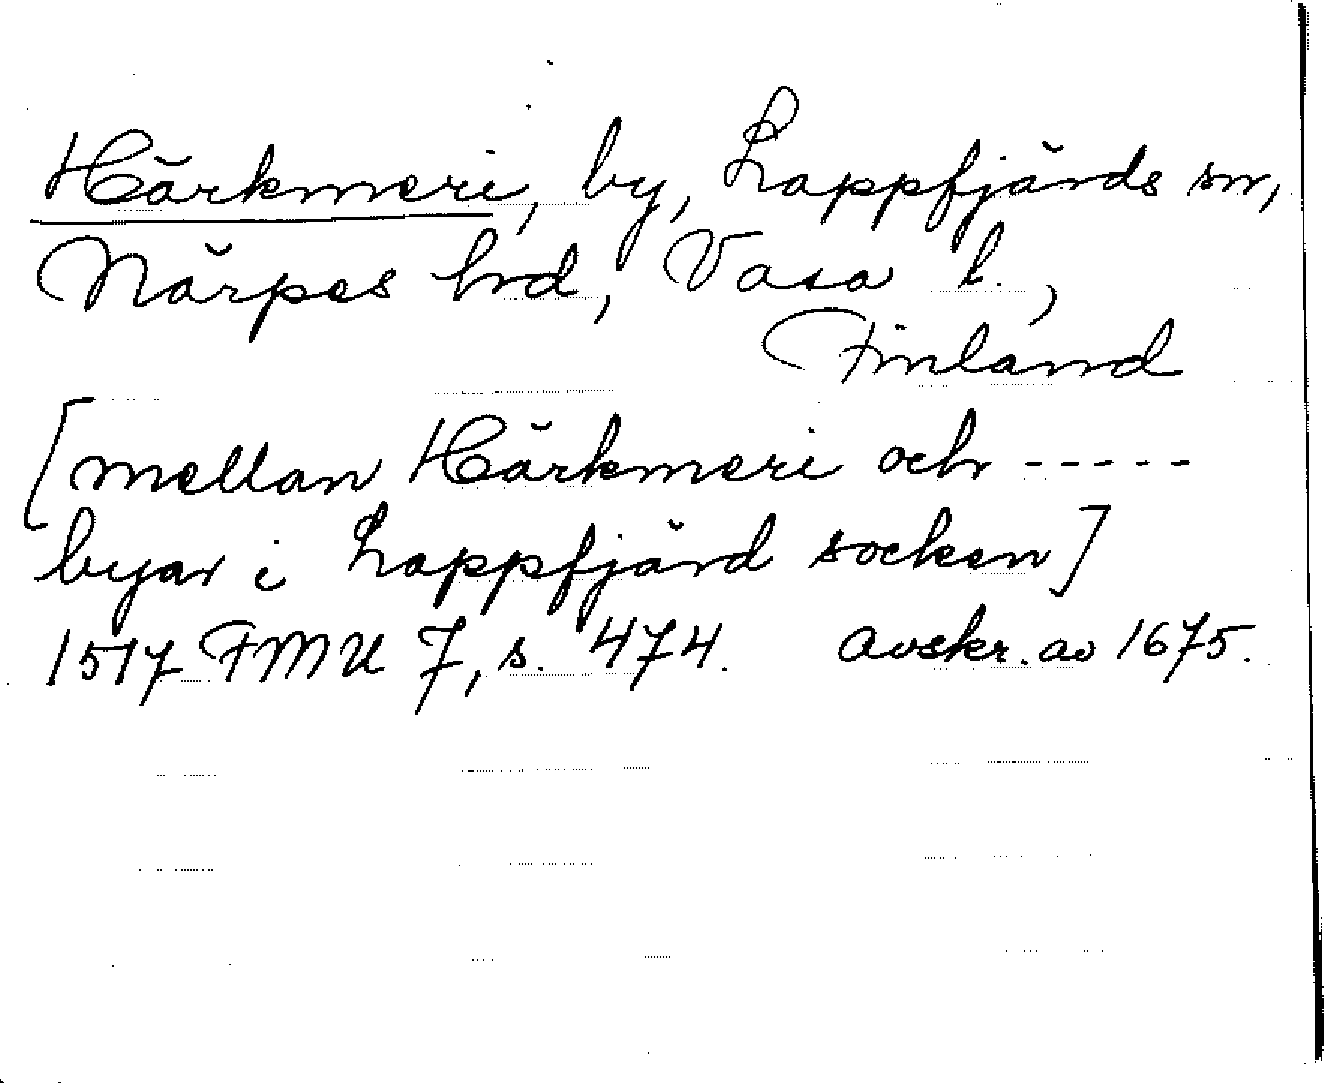 Härkmeri, by, Lappfjärds sn,
Närpes hrd, Vasa l.,
Finland
[mellan Härkmeri och -----
byar i Lappfjärd socken]
1517 FMU 7, s. 474. Avskr. av 1675.